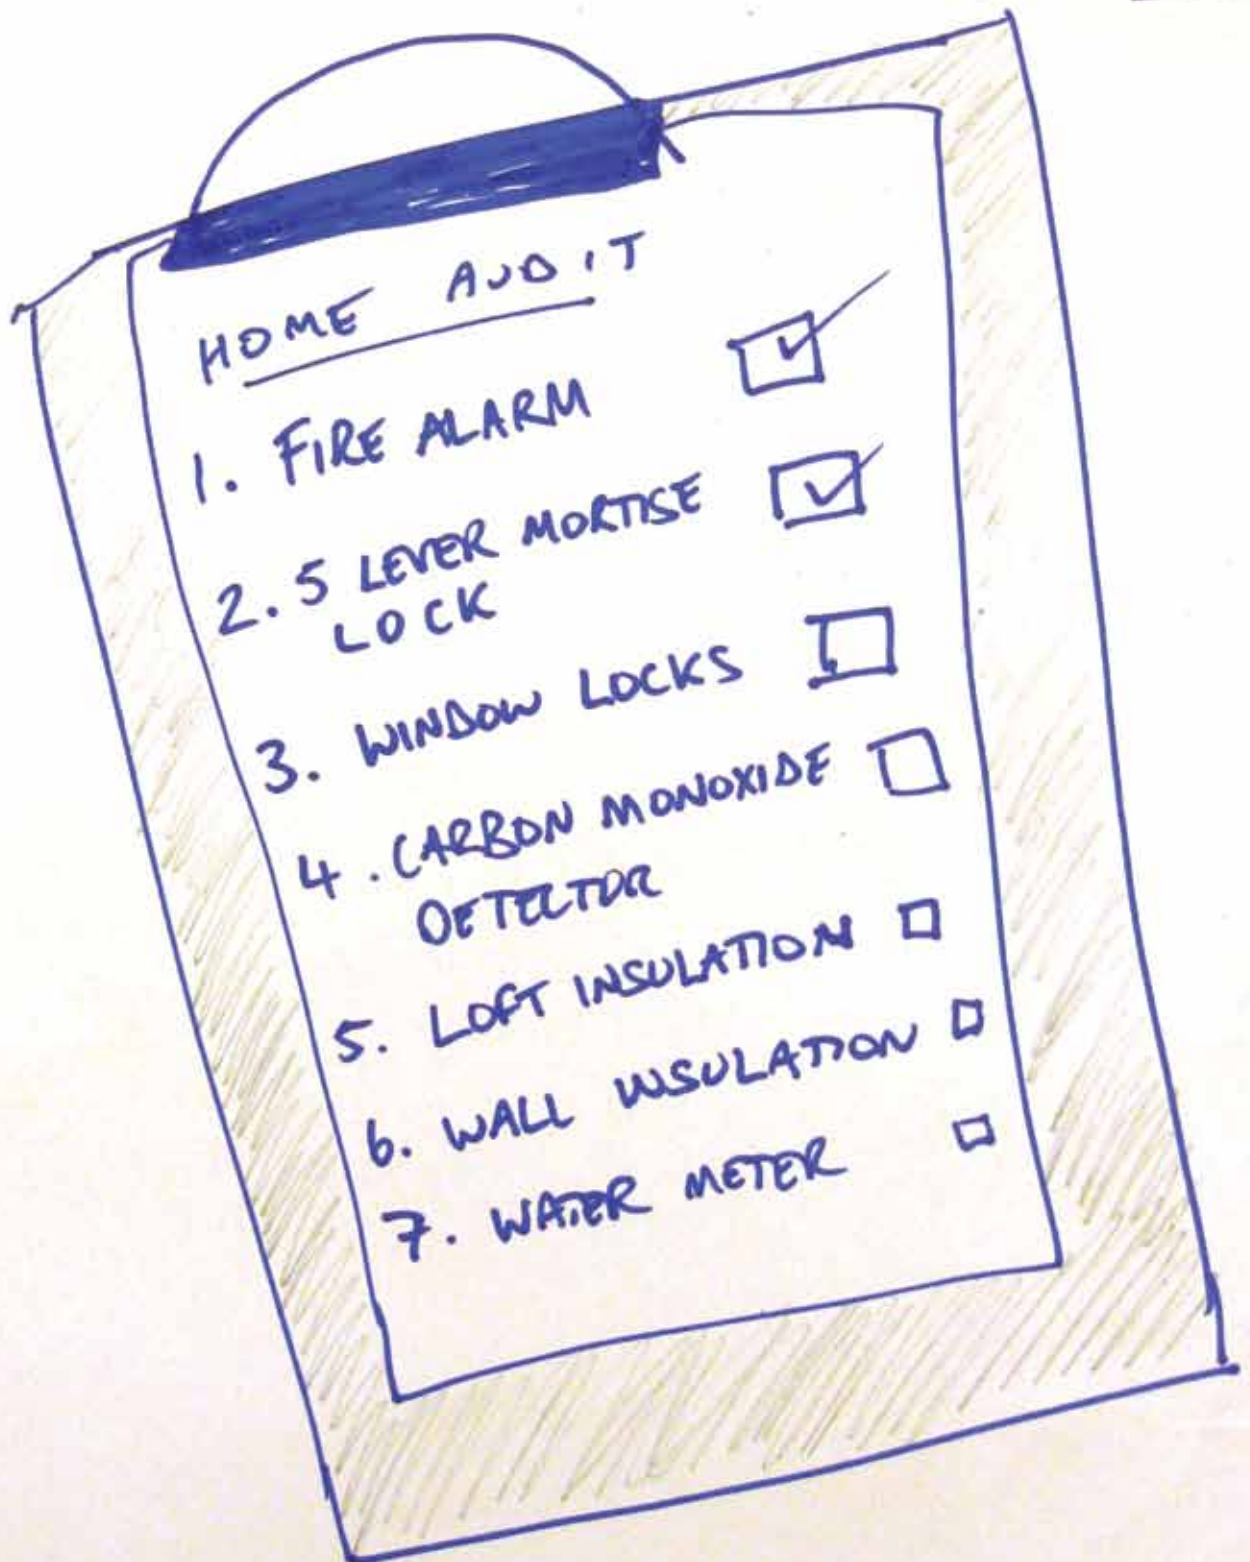 HOME AUDIT
1. FIRE ALARM
2. 5 LEVER MORTISE
LOCK
3. WINDOW LOCKS
4. CARBON MONOXIDE
DETECTOR
5. LOFT INSULATION
6. WALL INSULATION
7. WATER METER